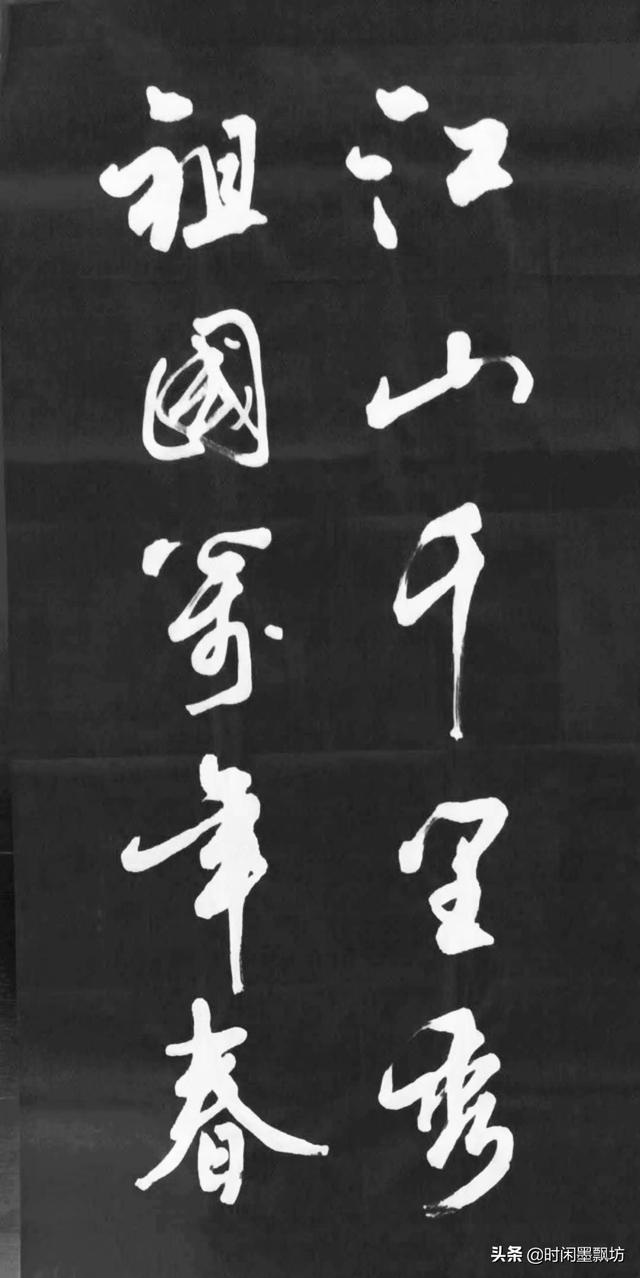 江山千里秀
祖國萬年春
头条 @时闲墨飘坊